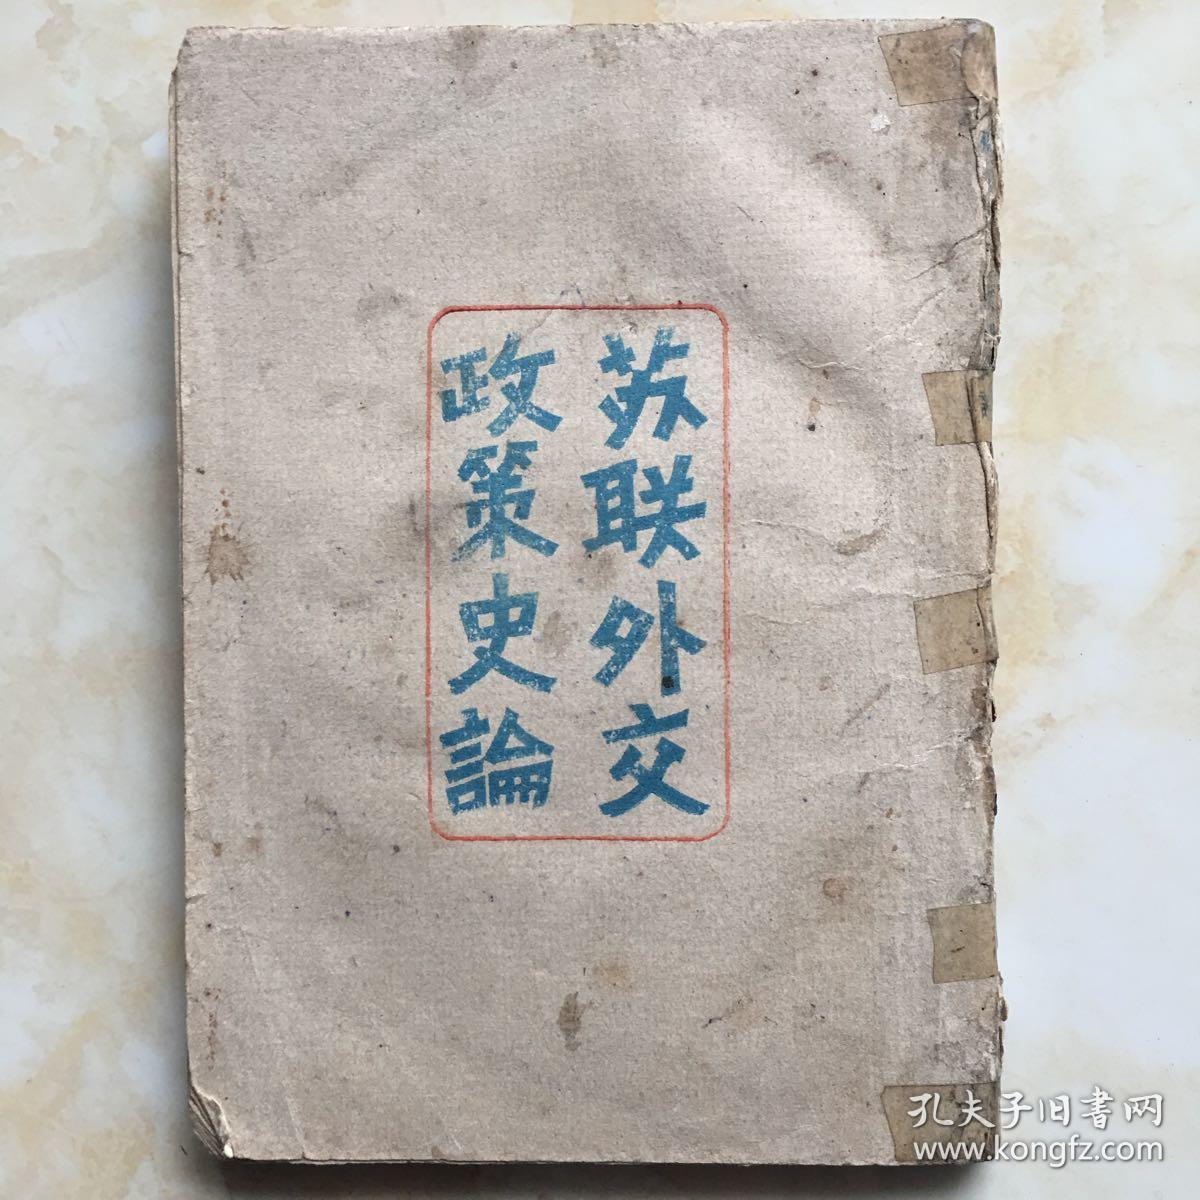 苏联外交
政策史論
孔夫子旧書网
www.kongfz.com